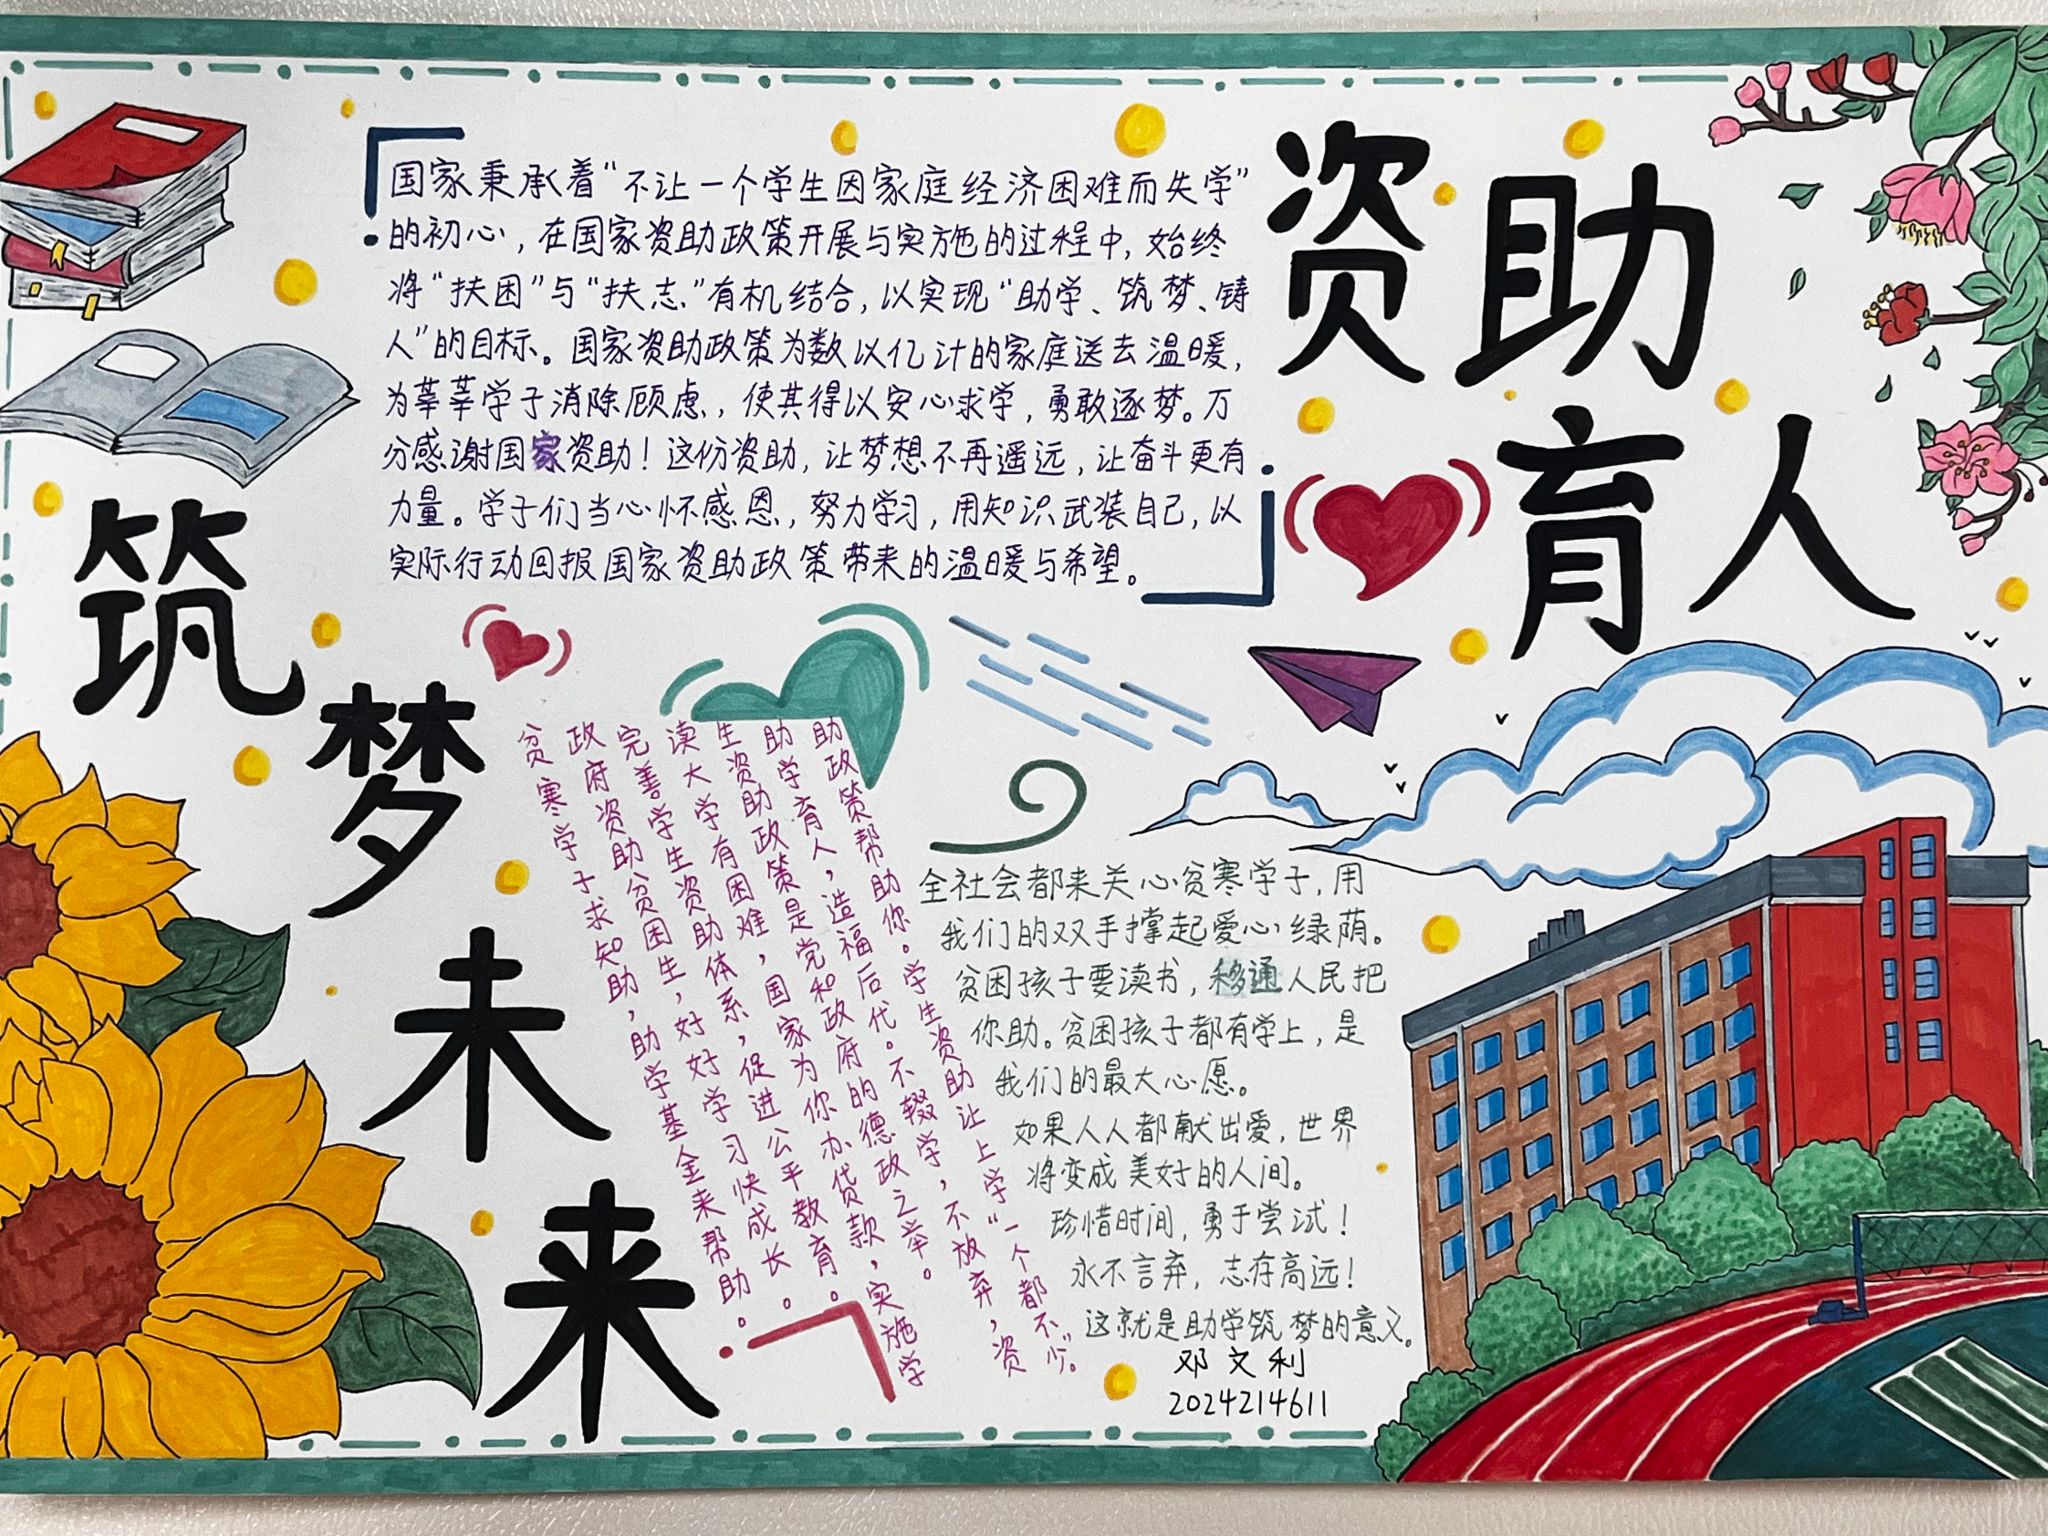 资助
育人
筑梦未来
国家秉承着“不让一个学生因家庭经济困难而失学”
的初心，在国家资助政策开展与实施的过程中，始终
将“扶困”与“扶志”有机结合，以实现“助学、筑梦、铸
人”的目标。国家资助政策为数以亿计的家庭送去温暖，
为莘莘学子消除顾虑，使其得以安心求学，勇敢逐梦。万
分感谢国家资助！这份资助，让梦想不再遥远，让奋斗更有
力量。学子们当心怀感恩，努力学习，用知识武装自己，以
实际行动回报国家资助政策带来的温暖与希望。
贫寒学子求知助，助学基金来帮助。
政府资助贫困生，好好学习快成长。
完善学生资助体系，促进公平教育。
读大学有困难，国家为你办贷款，实施学
生资助政策是党和政府的德政之举。
助学育人，造福后代。不辍学，不放弃，资
助政策帮助你。学生资助让上学“一个都不少”。
全社会都来关心贫寒学子，用
我们的双手撑起爱心绿荫。
贫困孩子要读书，移通人民把
你助。贫困孩子都有学上，是
我们的最大心愿。
如果人人都献出爱，世界
将变成美好的人间。
珍惜时间，勇于尝试！
永不言弃，志存高远！
这就是助学筑梦的意义。
邓文利
2024214611